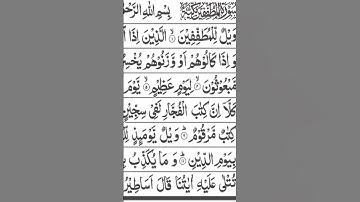 سُوْرَةُ الْمُطَفِّفِيْنَ مَكِّيَّةٌ بِسْمِ اللّٰهِ الرَّحْمٰ
وَيْلٌ لِّلْمُطَفِّفِيْنَ ۙ الَّذِيْنَ اِذَا ا
وَ اِذَا كَالُوْهُمْ اَوْ وَّزَنُوْهُمْ يُخْسِرُ
مَّبْعُوْثُوْنَ ۙ لِيَوْمٍ عَظِيْمٍ ۙ يَّوْمَ
كَلَّاۤ اِنَّ كِتٰبَ الْفُجَّارِ لَفِيْ سِجِّيْنٍ
كِتٰبٌ مَّرْقُوْمٌ ؕ وَيْلٌ يَّوْمَىِٕذٍ لِّلْ
بِيَوْمِ الدِّيْنِ ؕ وَ مَا يُكَذِّبُ بِ
تُتْلٰى عَلَيْهِ اٰيٰتُنَا قَالَ اَسَاطِيْرُ